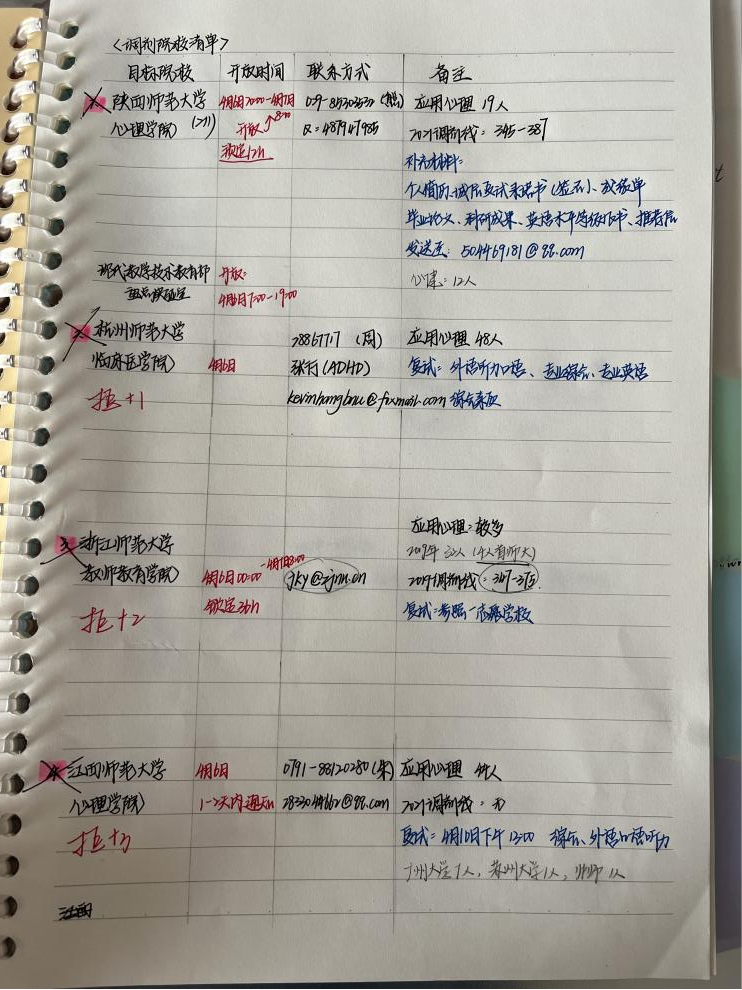 <调剂院校清单>
目标院校 开放时间 联系方式 备注
1. 陕西师范大学 4月6日 应用心理 19人
(心理学院) (211) 开放 Q=487947985 2021调剂线: 345-387
锁定12h 补充材料:
个人简历、诚信复试承诺书(签名)、成绩单
毕业论文、科研成果、英语水平等级证书、推荐信
发送至: 504469181@qq.com
现代教学技术教育部 开放: 心健: 12人
重点实验室 4月6日7:00-19:00
2. 杭州师范大学 28867717 (周) 应用心理 48人
临床医学院) 4月6日 (ADHD) 复试: 外语听力口语、专业综合、专业英语
拒+1 @foxmail.com
应用心理: 较多
3. 浙江师范大学
教师教育学院) 4月6日00:00 jky@zjnu.cn 调剂线: 347-375
拒+2 锁定36h 复试: 参照一志愿学校
4. 江西师范大学 4月6日 0791-88120280(朱) 应用心理
心理学院) 1-2天内通知 @qq.com 2021调剂线: 无
拒+3 复试: 4月10日下午13:00 综合、外语口语听力
广州大学1人, 苏州大学1人,
江西